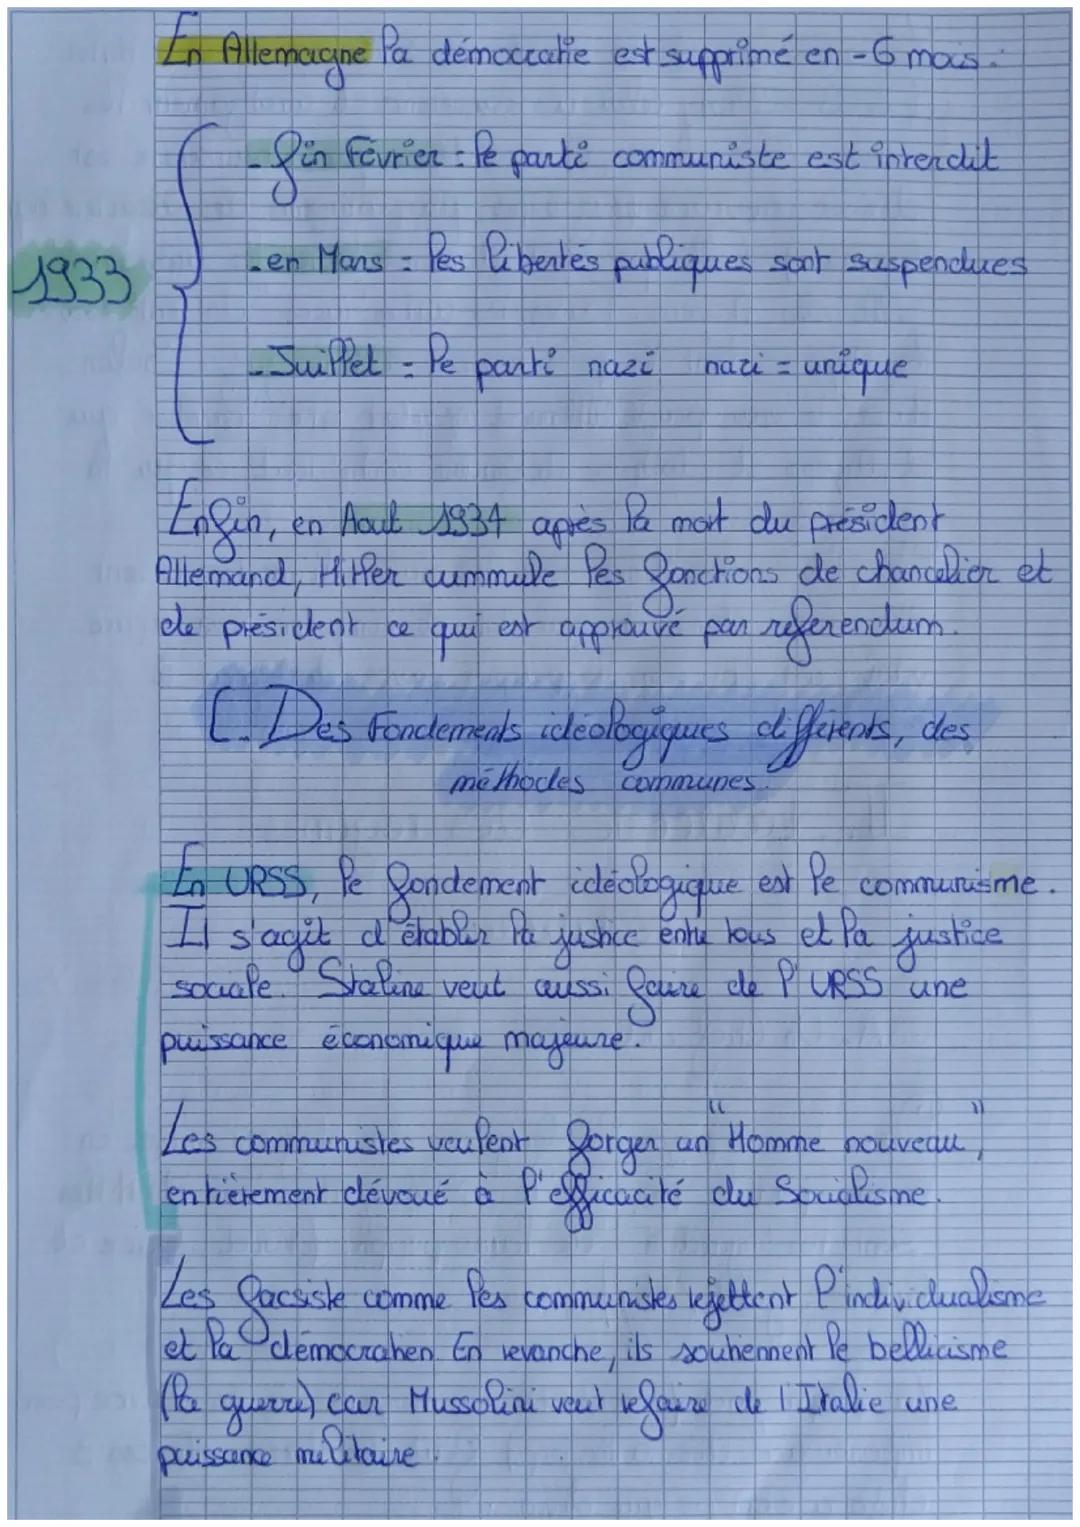 En Allemagne la démocratie est supprimé en -6 mois.
- fin Février : le parti communiste est interdit
1933
- en Mars : les libertés publiques sont suspendues
- Juillet = le parti nazi nazi = unique
Enfin, en Aout 1934 après la mort du président
Allemand, Hitler cummule les fonctions de chancelier et
de président ce qui est approuvé par referendum.
C. Des Fondements idéologiques différents, des
méthodes communes.
En URSS, le fondement idéologique est le communisme.
Il s'agit d'établir la justice entre tous et la justice
sociale. Staline veut aussi faire de l'URSS une
puissance économique majeure.
Les communistes veulent forger un "Homme nouveau",
entièrement dévoué à l'efficacité du Socialisme.
Les facsiste comme les communistes rejettent l'individualisme
et la démocratien. En revanche, ils soutiennent le bellicisme
(la guerre) car Mussolini veut refaire de l'Italie une
puissance militaire.